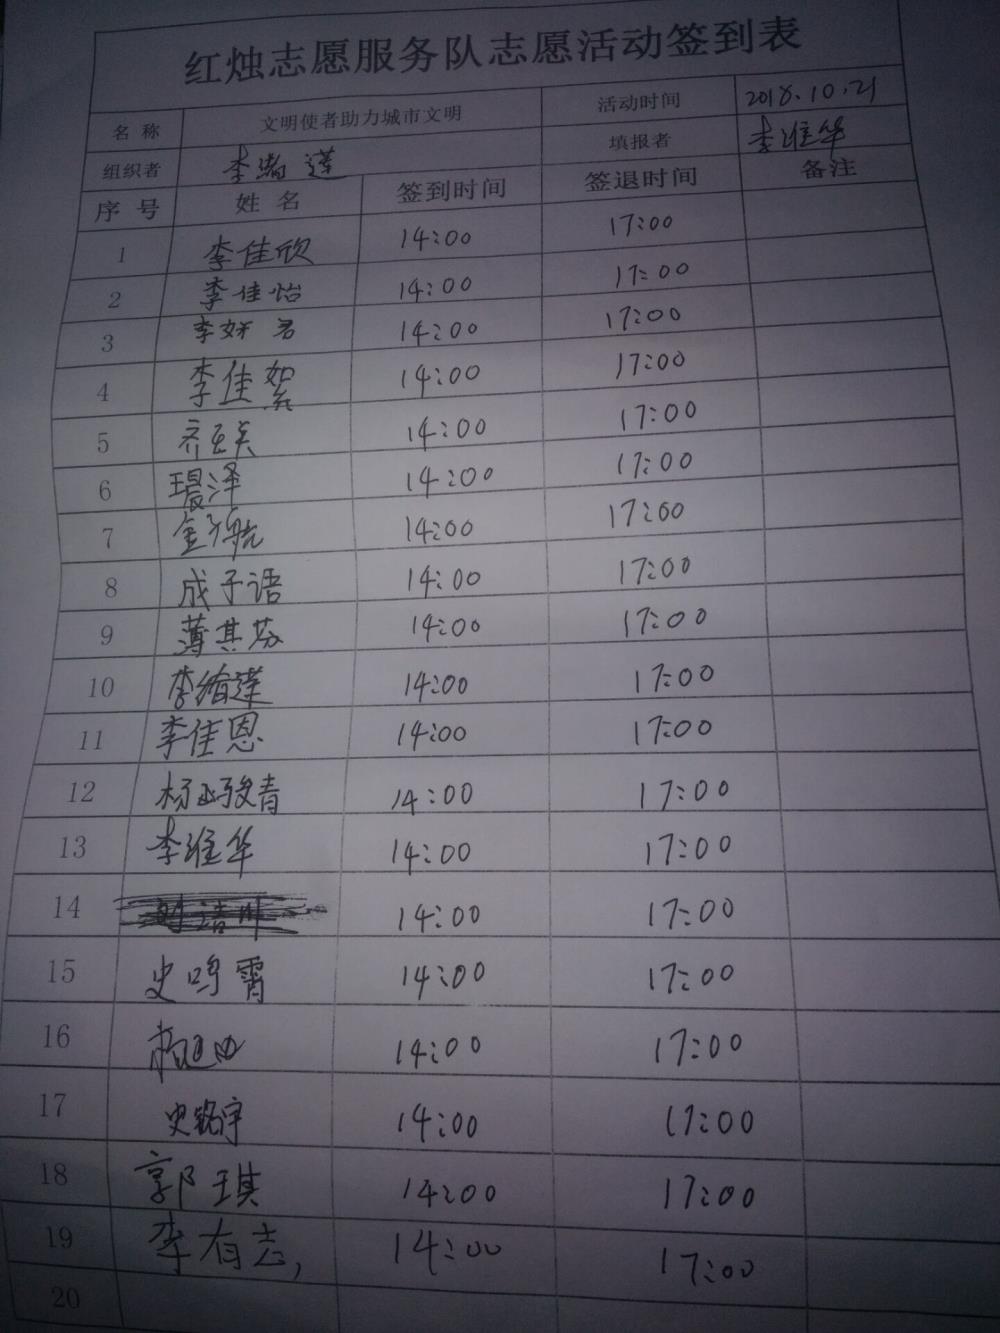 红烛志愿服务队志愿活动签到表
名 称 文明使者助力城市文明 活动时间 2018.10.21
组织者 李 莲 填报者 李维华
序 号 姓 名 签到时间 签退时间 备注
1 李佳欣 14:00 17:00
2 李佳怡 14:00 17:00
3 李妍名 14:00 17:00
4 李佳絮 14:00 17:00
5 14:00 17:00
6 14:00 17:00
7 14:00 17:00
8 成子语 14:00 17:00
9 薄其芬 14:00 17:00
10 李 莲 14:00 17:00
11 李佳恩 14:00 17:00
12 杨 骏青 14:00 17:00
13 李维华 14:00 17:00
14 14:00 17:00
15 史鸣霄 14:00 17:00
16 14:00 17:00
17 史铭宇 14:00 17:00
18 郭琪 14:00 17:00
19 李有志, 14:00 17:00
20